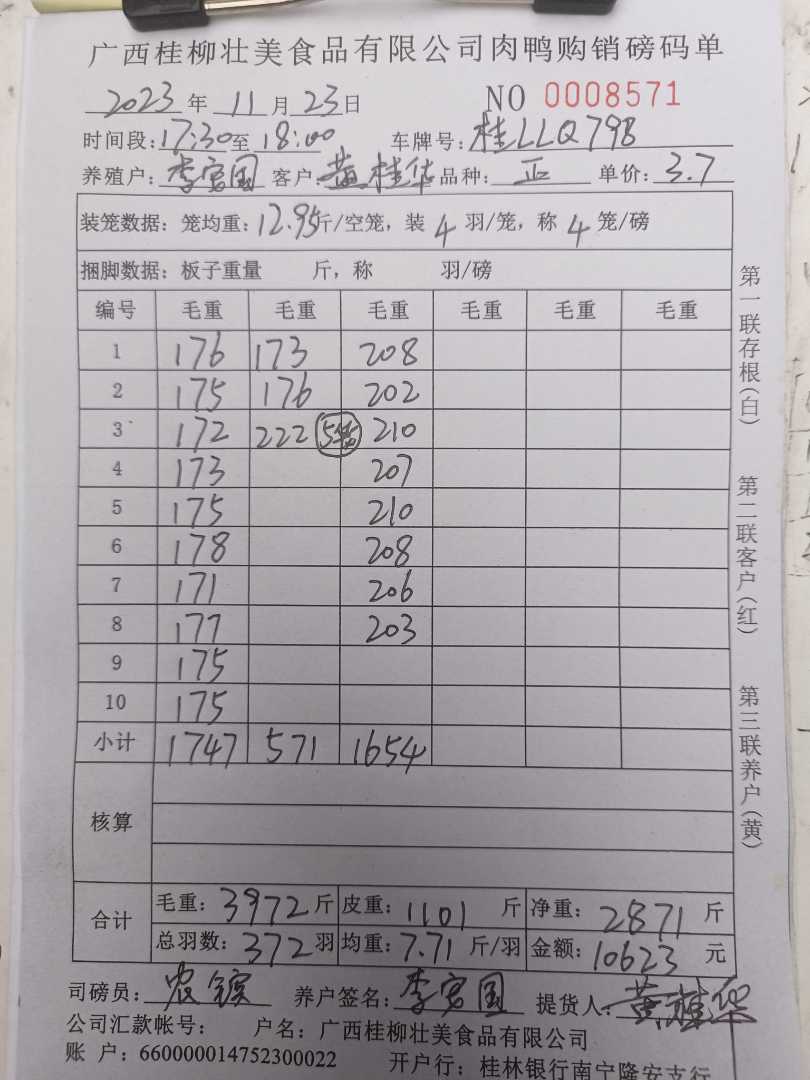 广西桂柳壮美食品有限公司肉鸭购销磅码单
2023年11月23日 NO 0008571
时间段:17:30至18:00 车牌号:桂LLQ798
养殖户:李宾国 客户:黄桂华 品种:正 单价:3.7
装笼数据:笼均重:12.95斤/空笼,装4羽/笼,称4笼/磅
捆脚数据:板子重量 斤,称 羽/磅
编号 毛重 毛重 毛重 毛重 毛重 毛重
1 176 173 208
2 175 176 202
3 172 222 5笼 210
4 173 207
5 175 210
6 178 208
7 171 206
8 177 203
9 175
10 175
小计 1747 571 1654
核算
合计 毛重:3972斤 皮重:1101斤 净重:2871斤
总羽数:372羽 均重:7.71斤/羽 金额:10623元
司磅员:农镔 养户签名:李宾国 提货人:黄桂华
公司汇款帐号: 户名:广西桂柳壮美食品有限公司
账 户:660000014752300022 开户行:桂林银行南宁隆安支行
第一联存根(白)
第二联客户(红)
第三联养户(黄)